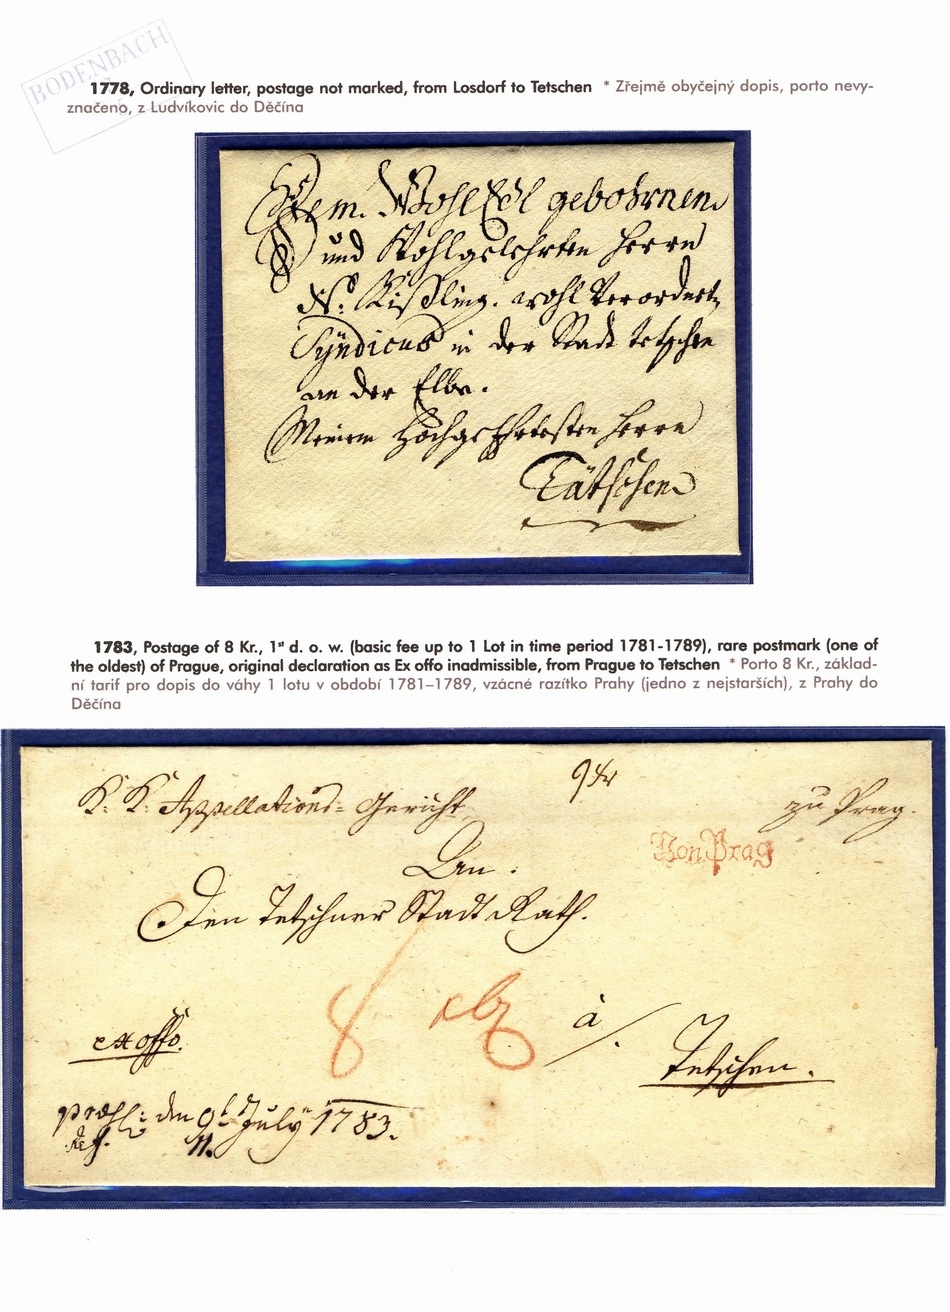 BODENBACH
1778, Ordinary letter, postage not marked, from Losdorf to Tetschen * Zřejmě obyčejný dopis, porto nevy-
značeno, z Ludvíkovic do Děčína
Dem. WohlEdl gebohrnen
und Wohlgelehrten Herrn
N: Kißling. wohl Verordnete
Syndicus in der Stadt tetschen
an der Elbe.
Meinem Hochgeehrtesten Herrn
Tätschen
1783, Postage of 8 Kr., 1st d. o. w. (basic fee up to 1 Lot in time period 1781-1789), rare postmark (one of
the oldest) of Prague, original declaration as Ex offo inadmissible, from Prague to Tetschen * Porto 8 Kr., základ-
ní tarif pro dopis do váhy 1 lotu v období 1781–1789, vzácné razítko Prahy (jedno z nejstarších), z Prahy do
Děčína
K: K: Appellations= Gericht
zu Prag.
Von Prag
An.
Den Tetschner Stadt Rath.
8
à
ex offo.
Tetschen.
den 9t July 1783.